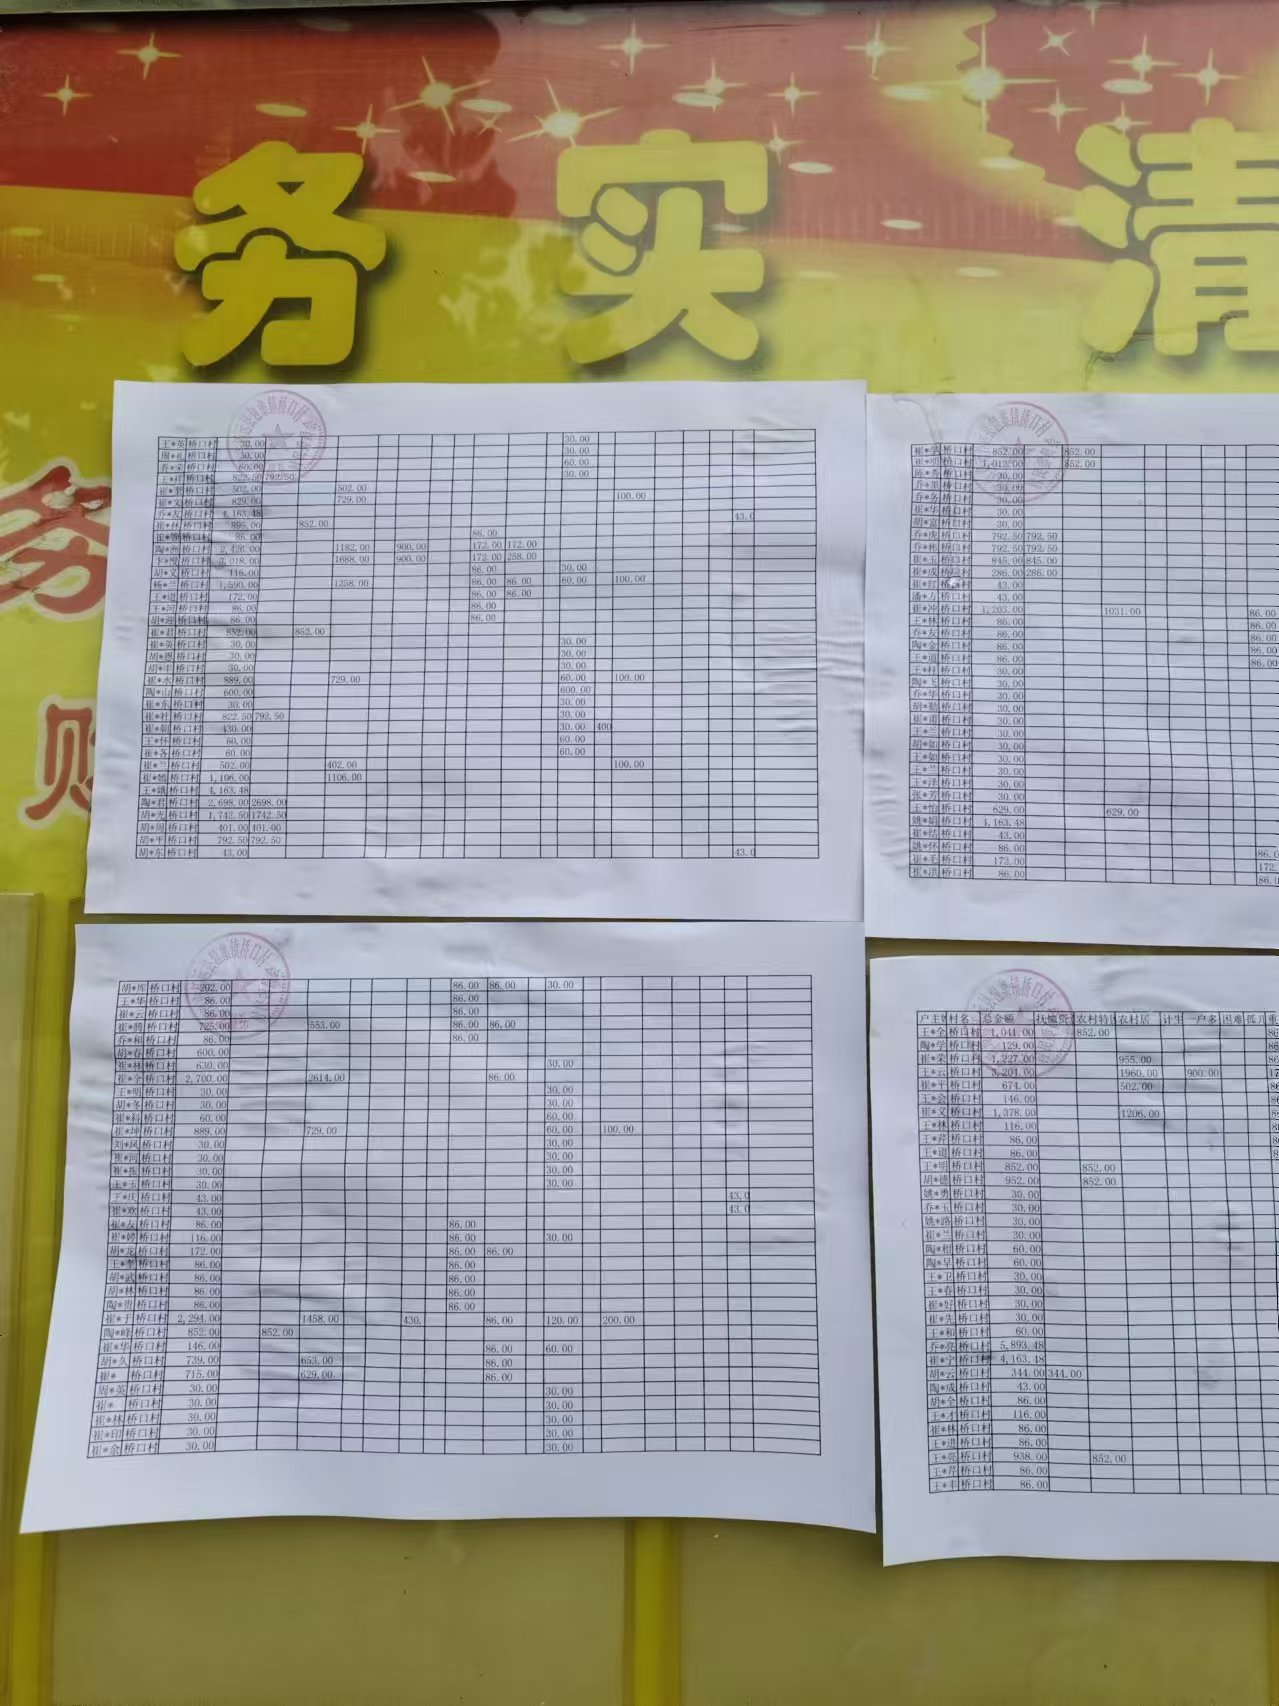 务实清
务
财
王*英 桥口村 30.00 30.00
周*礼 桥口村 30.00 30.00
乔*荣 桥口村 60.00 60.00
王*祥 桥口村 822.50 792.50 30.00
崔*奎 桥口村 502.00 502.00
崔*文 桥口村 829.00 729.00 100.00
乔*友 桥口村 4,163.48
崔*林 桥口村 895.00 852.00 43.0
崔*领 桥口村 86.00 86.00
陶*洲 桥口村 2,426.00 1182.00 900.00 172.00 172.00
卞*俊 桥口村 3,018.00 1688.00 900.00 172.00 258.00
胡*义 桥口村 116.00 86.00 30.00
杨*兰 桥口村 1,590.00 1258.00 86.00 86.00 60.00 100.00
王*道 桥口村 172.00 86.00 86.00
王*河 桥口村 86.00 86.00
胡*迎 桥口村 86.00 86.00
崔*君 桥口村 852.00 852.00
崔*英 桥口村 30.00 30.00
胡*恩 桥口村 30.00 30.00
胡*丰 桥口村 30.00 30.00
崔*水 桥口村 889.00 729.00 60.00 100.00
陶*山 桥口村 600.00 600.00
崔*东 桥口村 30.00 30.00
崔*社 桥口村 822.50 792.50 30.00
崔*朝 桥口村 430.00 30.00 400
王*怀 桥口村 60.00 60.00
崔*各 桥口村 60.00 60.00
崔*兰 桥口村 502.00 402.00 100.00
崔*嫣 桥口村 1,106.00 1106.00
王*娥 桥口村 4,163.48
陶*君 桥口村 2,698.00 2698.00
胡*光 桥口村 1,742.50 1742.50
胡*周 桥口村 401.00 401.00
胡*平 桥口村 792.50 792.50
胡*东 桥口村 43.00 43.0
崔*学 桥口村 852.00 852.00
崔*明 桥口村 1,012.00 852.00
陈*秀 桥口村 30.00
乔*奎 桥口村 30.00
乔*务 桥口村 30.00
崔*华 桥口村 30.00
胡*富 桥口村 30.00
乔*虎 桥口村 792.50 792.50
乔*彬 桥口村 792.50 792.50
崔*玉 桥口村 845.00 845.00
崔*成 桥口村 286.00 286.00
崔*红 桥口村 43.00
潘*方 桥口村 43.00
崔*冲 桥口村 1,203.00 1031.00 86.00
王*林 桥口村 86.00 86.00
乔*友 桥口村 86.00 86.00
陶*金 桥口村 86.00 86.00
王*道 桥口村 86.00 86.00
王*柱 桥口村 30.00
陶*飞 桥口村 30.00
乔*华 桥口村 30.00
胡*勤 桥口村 30.00
崔*道 桥口村 30.00
王*兰 桥口村 30.00
胡*如 桥口村 30.00
王*如 桥口村 30.00
王*兰 桥口村 30.00
王*泽 桥口村 30.00
张*芳 桥口村 30.00
王*怡 桥口村 629.00 629.00
姚*娟 桥口村 4,163.48
崔*结 桥口村 43.00
姚*怀 桥口村 86.00 86.0
崔*毛 桥口村 172.00 172.
崔*洪 桥口村 86.00 86.0
胡*库 桥口村 202.00 86.00 86.00 30.00
王*华 桥口村 86.00 86.00
崔*云 桥口村 86.00 86.00
崔*腾 桥口村 725.00 553.00 86.00 86.00
乔*和 桥口村 86.00 86.00
胡*春 桥口村 600.00
崔*林 桥口村 630.00 30.00
崔*全 桥口村 2,700.00 2614.00 86.00
王*明 桥口村 30.00 30.00
胡*冬 桥口村 30.00 30.00
崔*科 桥口村 60.00 60.00
崔*坤 桥口村 889.00 729.00 60.00 100.00
刘*凤 桥口村 30.00 30.00
崔*河 桥口村 30.00 30.00
崔*连 桥口村 30.00 30.00
王*玉 桥口村 30.00 30.00
王*庆 桥口村 43.00 43.0
崔*欢 桥口村 43.00 43.0
崔*友 桥口村 86.00 86.00
崔*婷 桥口村 116.00 86.00 30.00
胡*龙 桥口村 172.00 86.00 86.00
王*奎 桥口村 86.00 86.00
胡*武 桥口村 86.00 86.00
胡*林 桥口村 86.00 86.00
陶*贵 桥口村 86.00 86.00
崔*于 桥口村 2,294.00 1458.00 430. 86.00 120.00 200.00
陶*峰 桥口村 852.00 852.00
崔*华 桥口村 146.00 86.00 60.00
胡*久 桥口村 739.00 653.00 86.00
崔* 桥口村 715.00 629.00 86.00
周*英 桥口村 30.00 30.00
崔* 桥口村 30.00 30.00
崔*林 桥口村 30.00 30.00
崔*印 桥口村 30.00 30.00
崔*余 桥口村 30.00 30.00
户主姓 村名 总金额 抚恤资 农村特 农村居 计生 一户多 困难 孤儿 重
王*全 桥口村 1,041.00 852.00 86
陶*学 桥口村 129.00 86
崔*荣 桥口村 1,227.00 955.00 86
王*云 桥口村 3,204.00 1960.00 900.00 17
崔*平 桥口村 674.00 502.00 86
王*会 桥口村 146.00 86
崔*义 桥口村 1,378.00 1206.00 86
王*林 桥口村 116.00 8
王*芹 桥口村 86.00 8
王*道 桥口村 86.00 8
王*明 桥口村 852.00 852.00
胡*德 桥口村 952.00 852.00
姚*勇 桥口村 30.00
乔*玉 桥口村 30.00
姚*路 桥口村 30.00
崔*兰 桥口村 30.00
陶*相 桥口村 60.00
陶*早 桥口村 60.00
王*卫 桥口村 30.00
王*春 桥口村 30.00
崔*好 桥口村 30.00
崔*先 桥口村 30.00
王*和 桥口村 60.00
乔*亮 桥口村 5,893.48
崔*宁 桥口村 4,163.48
胡*云 桥口村 344.00 344.00
陶*成 桥口村 43.00
胡*全 桥口村 86.00
王*才 桥口村 116.00
崔*林 桥口村 86.00
王*进 桥口村 86.00
王*亮 桥口村 938.00 852.00
王*芹 桥口村 86.00
王*丰 桥口村 86.00